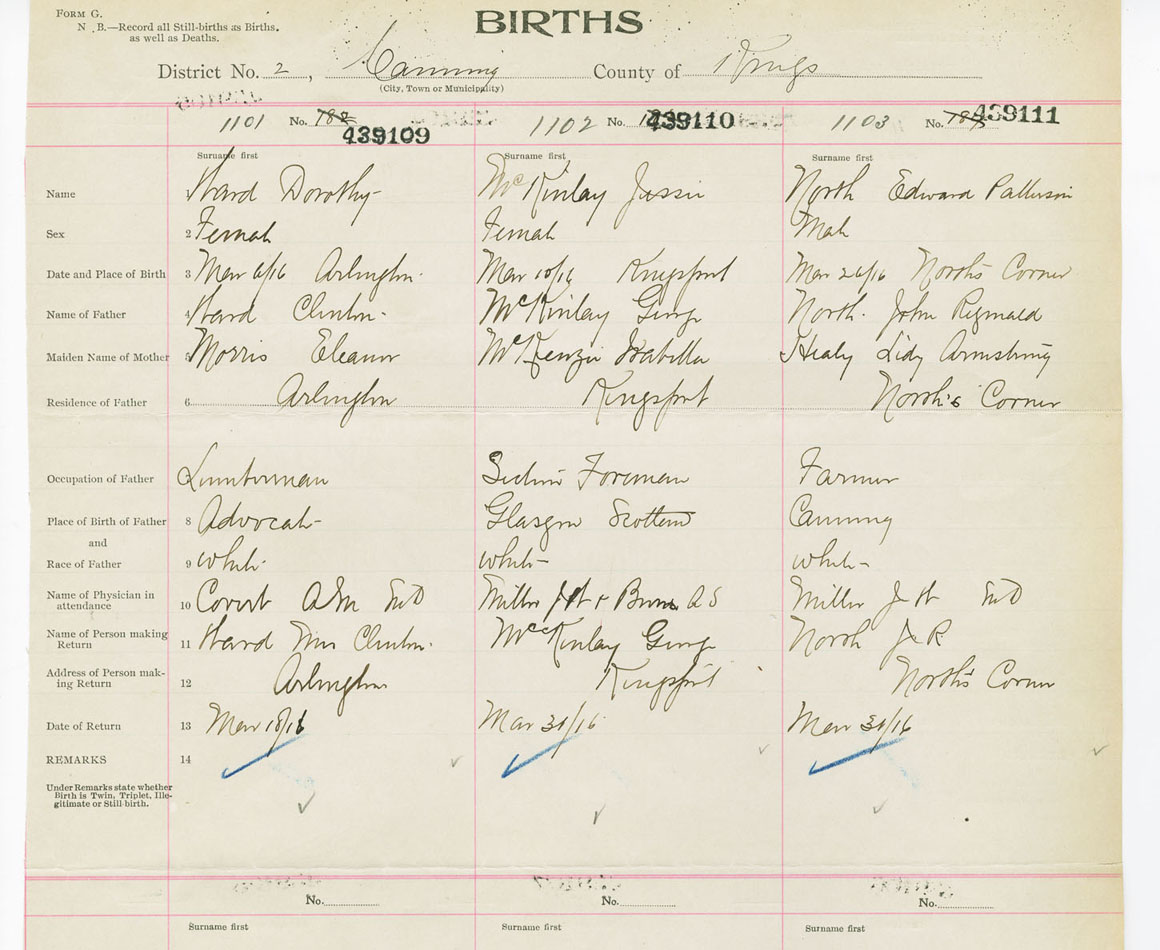 FORM G.
N.B.—Record all Still-births as Births, as well as Deaths.
BIRTHS
District No. 2, Canning County of Kings
(City, Town or Municipality)
1101 No. 439109 1102 No. 439110 1103 No. 439111
Surname first Surname first Surname first
Name 1 Ward Dorothy McKinlay Jessie North Edward Patterson
Sex 2 Female Female Male
Date and Place of Birth 3 Mar 6/16 Arlington Mar 10/16 Kingsport Mar 26/16 North's Corner
Name of Father 4 Ward Clinton McKinlay George North John Reginald
Maiden Name of Mother 5 Morris Eleanor McKenzie Isabella Healy Lidy Armstrong
Residence of Father 6 Arlington Kingsport North's Corner
Occupation of Father Lumberman Section Foreman Farmer
Place of Birth of Father 8 Advocate Glasgow Scotland Canning
and
Race of Father 9 White White White
Name of Physician in attendance 10 Covert A M MD Miller J H + Burns A S Miller J H MD
Name of Person making Return 11 Ward Mrs Clinton McKinlay George North J R
Address of Person making Return 12 Arlington Kingsport North's Corner
Date of Return 13 Mar 18/16 Mar 31/16 Mar 31/16
REMARKS 14
Under Remarks state whether
Birth is Twin, Triplet, Ille-
gitimate or Still-birth.
No. No. No.
Surname first Surname first Surname first